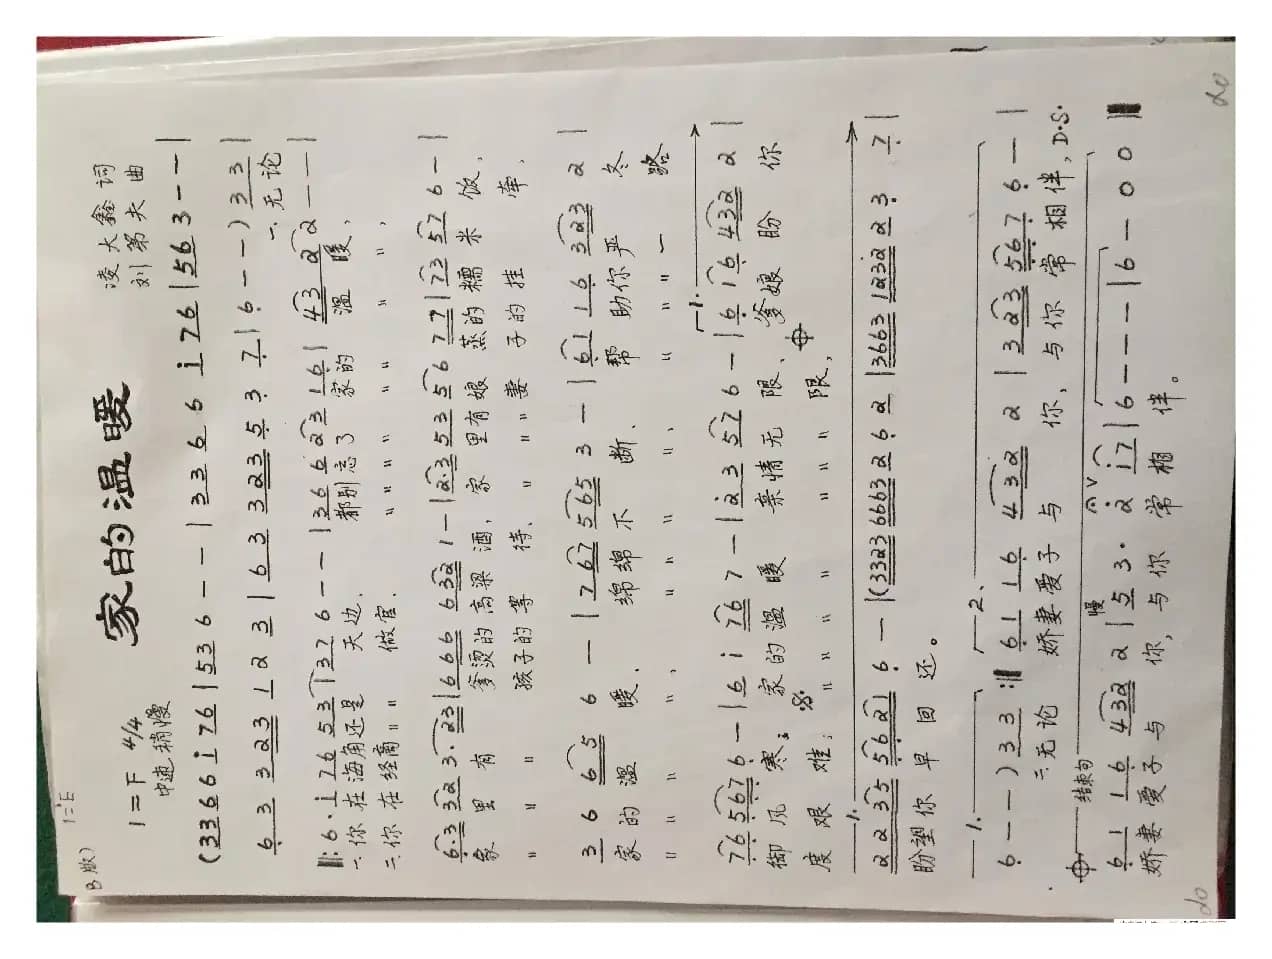 B版) 1=E
家的温暖
1=F 4/4
中速稍慢
凌大鑫词
刘第夫曲
(3366 i 76 | 536 - - | 336 6 i 76 | 563 - - |
6 3 323 1 2 3 | 63 323 5 3 7 | 6 - - ) 33 |
一、无论
|: 6 · i 76 53 | 376 - - | 366 23 16 | 43 22 - - |
一.你在海角还是天边, 都别忘了家的温暖,
二.你在经商〃〃做官. 〃〃〃〃〃〃〃〃,
6·3 32 3·23 | 666 632 1 - | 2·3 53 56 77 | 73 57 6 - |
家里有爹烫的高粱酒, 家里有娘蒸的糯米饭,
〃〃〃孩子的等待, 〃〃〃妻子的挂牵,
3 6 65 6 - | 767 565 3 - | 61 16 323 2 |
家的温暖, 绵绵不断, 帮助你严冬
〃〃〃〃, 〃〃〃〃, 〃〃〃一路
76 5676 - | 6 i 76 7 - | 2 3 57 6 - | 6 16 432 2 |
御风寒; 家的温暖亲情无限, 爹娘盼你
度艰难; 〃〃〃〃〃〃〃限,
1.
22 35 5621 6 - | (3323 6663 2 6 2 | 3663 1232 2 3 7 |
盼望你早回还。
1.
6 - - ) 33 :| 61 16 432 2 | 3 23 5676 - |
二.无论 娇妻爱子与你, 与你常相伴, D.S.
2.
结束句
61 16 432 2 | 53 · 2 i7 | 6 - - - | 6 - 0 0 ‖
慢
娇妻爱子与你, 与你常相伴。
20
20